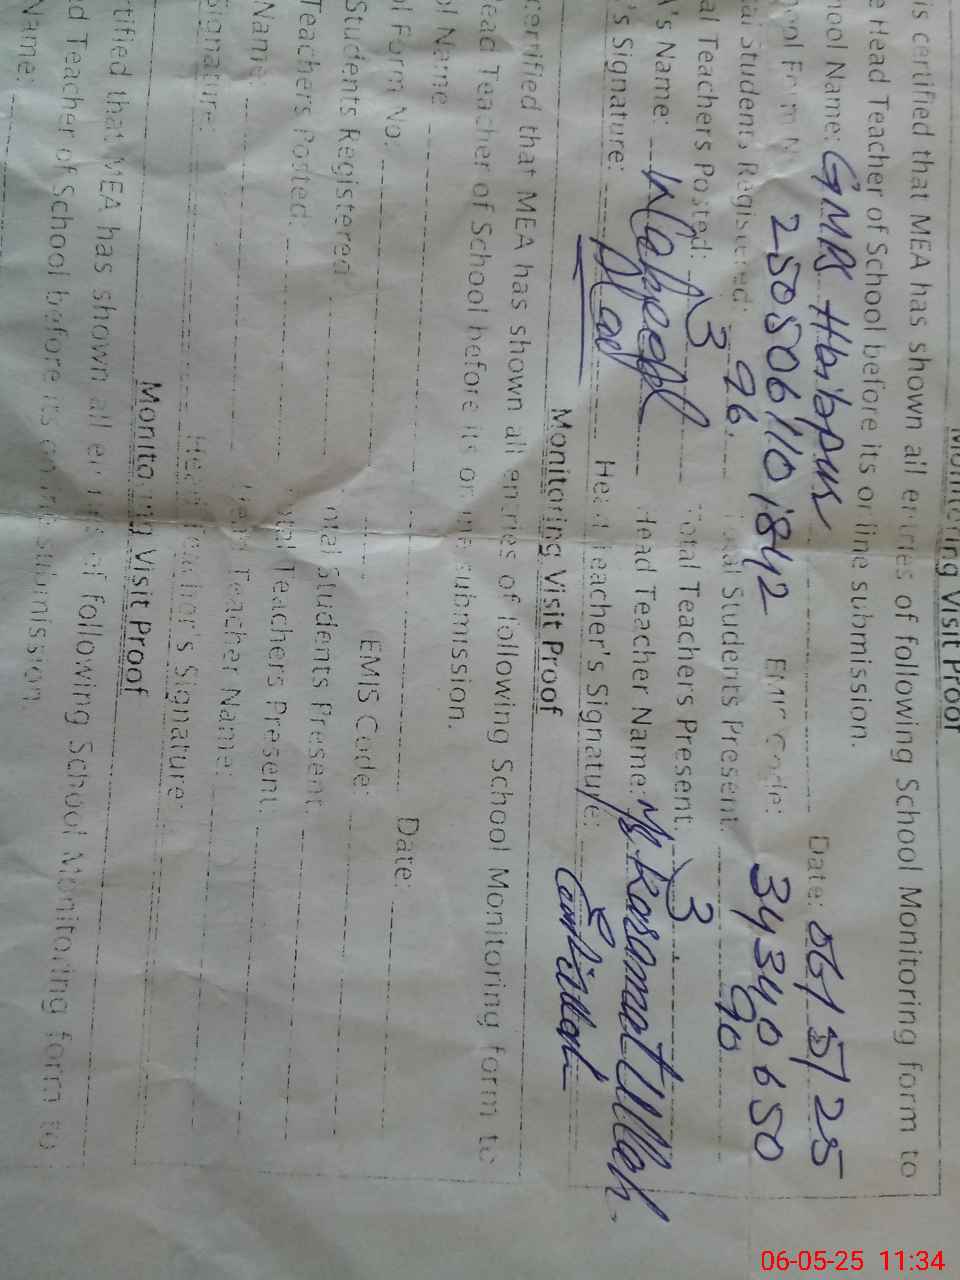 Monitoring Visit Proof
is certified that MEA has shown all entries of following School Monitoring form to
e Head Teacher of School before its online submission.
hool Name: GMPS Habibpur Date: 06/5/25
ool Form N 2505061101842 EMIS Code: 34340650
tal Students Registered: 96. Total Students Present: 90
al Teachers Posted: 3 Total Teachers Present: 3
A's Name: Waheed Head Teacher Name: M. Karamat Ullah.
's Signature: Head Teacher's Signature:
Monitoring Visit Proof
certified that MEA has shown all entries of following School Monitoring form to
ead Teacher of School before its online submission.
ol Name Date:
ol Form No. EMIS Code:
Students Registered Total Students Present:
Teachers Posted: Total Teachers Present:
Name: Head Teacher Name:
Signature: Head Teacher's Signature:
Monitoring Visit Proof
rtified that MEA has shown all entries of following School Monitoring form to
d Teacher of School before its online submission
Name:
06-05-25 11:34